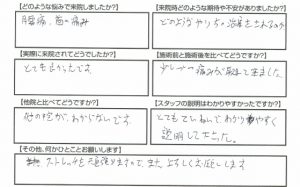 【どのような悩みで来院しましたか?】
腰痛、首の痛み
【来院時どのような期待や不安がありましたか?】
どのようなやり方の治療をされるのか
【実際に来院されてどうでしたか?】
とても良かったです。
【施術前と施術後を比べてどうですか?】
少しずつ痛みが取れて来ました。
【他院と比べてどうですか?】
他の院が、わからないです。
【スタッフの説明はわかりやすかったですか?】
とてもていねいで、わかりやすく
説明して下さった。
【その他、何かひとことお願いします】
ストレッチを頑張りますので、また、よろしくお願いします